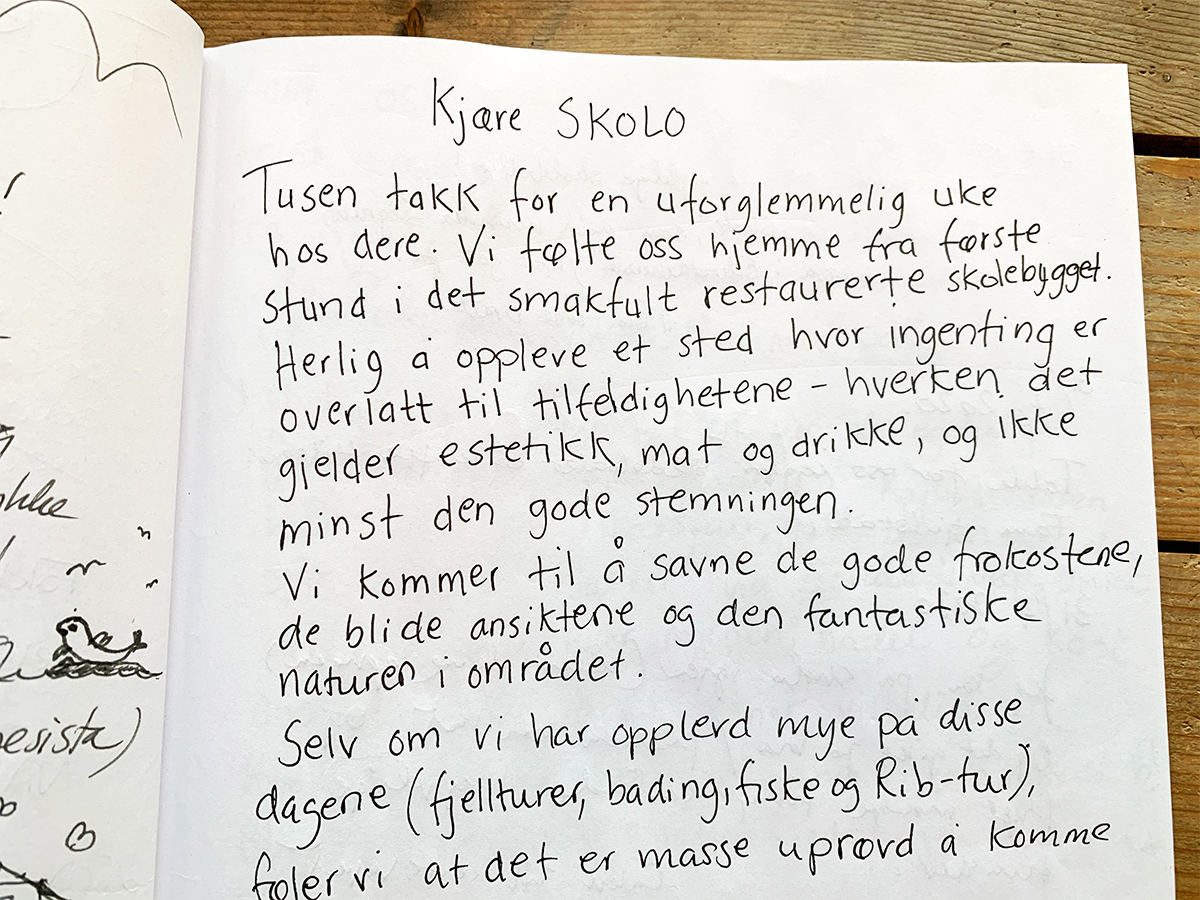 Kjære SKOLO
Tusen takk for en uforglemmelig uke
hos dere. Vi følte oss hjemme fra første
stund i det smakfult restaurerte skolebygget.
Herlig å oppleve et sted hvor ingenting er
overlatt til tilfeldighetene – hverken det
gjelder estetikk, mat og drikke, og ikke
minst den gode stemningen.
Vi kommer til å savne de gode frokostene,
de blide ansiktene og den fantastiske
naturen i området.
Selv om vi har opplevd mye på disse
dagene (fjellturer, bading, fiske og Rib-tur),
føler vi at det er masse uprøvd å komme